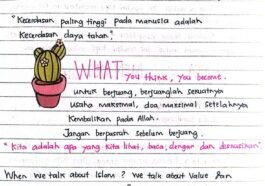 "Kecerdasan paling tinggi pada manusia adalah
Kecerdasan daya tahan".
WHAT you think, you become.
untuk berjuang, berjuanglah sekuatnya
usaha maksimal, doa maksimal setelahnya
Kembalikan pada Allah.
Jangan berpasrah sebelum berjuang.
"Kita adalah apa yang kita lihat, baca, dengar dan diskusikan"
When we talk about Islam? we talk about Value dan